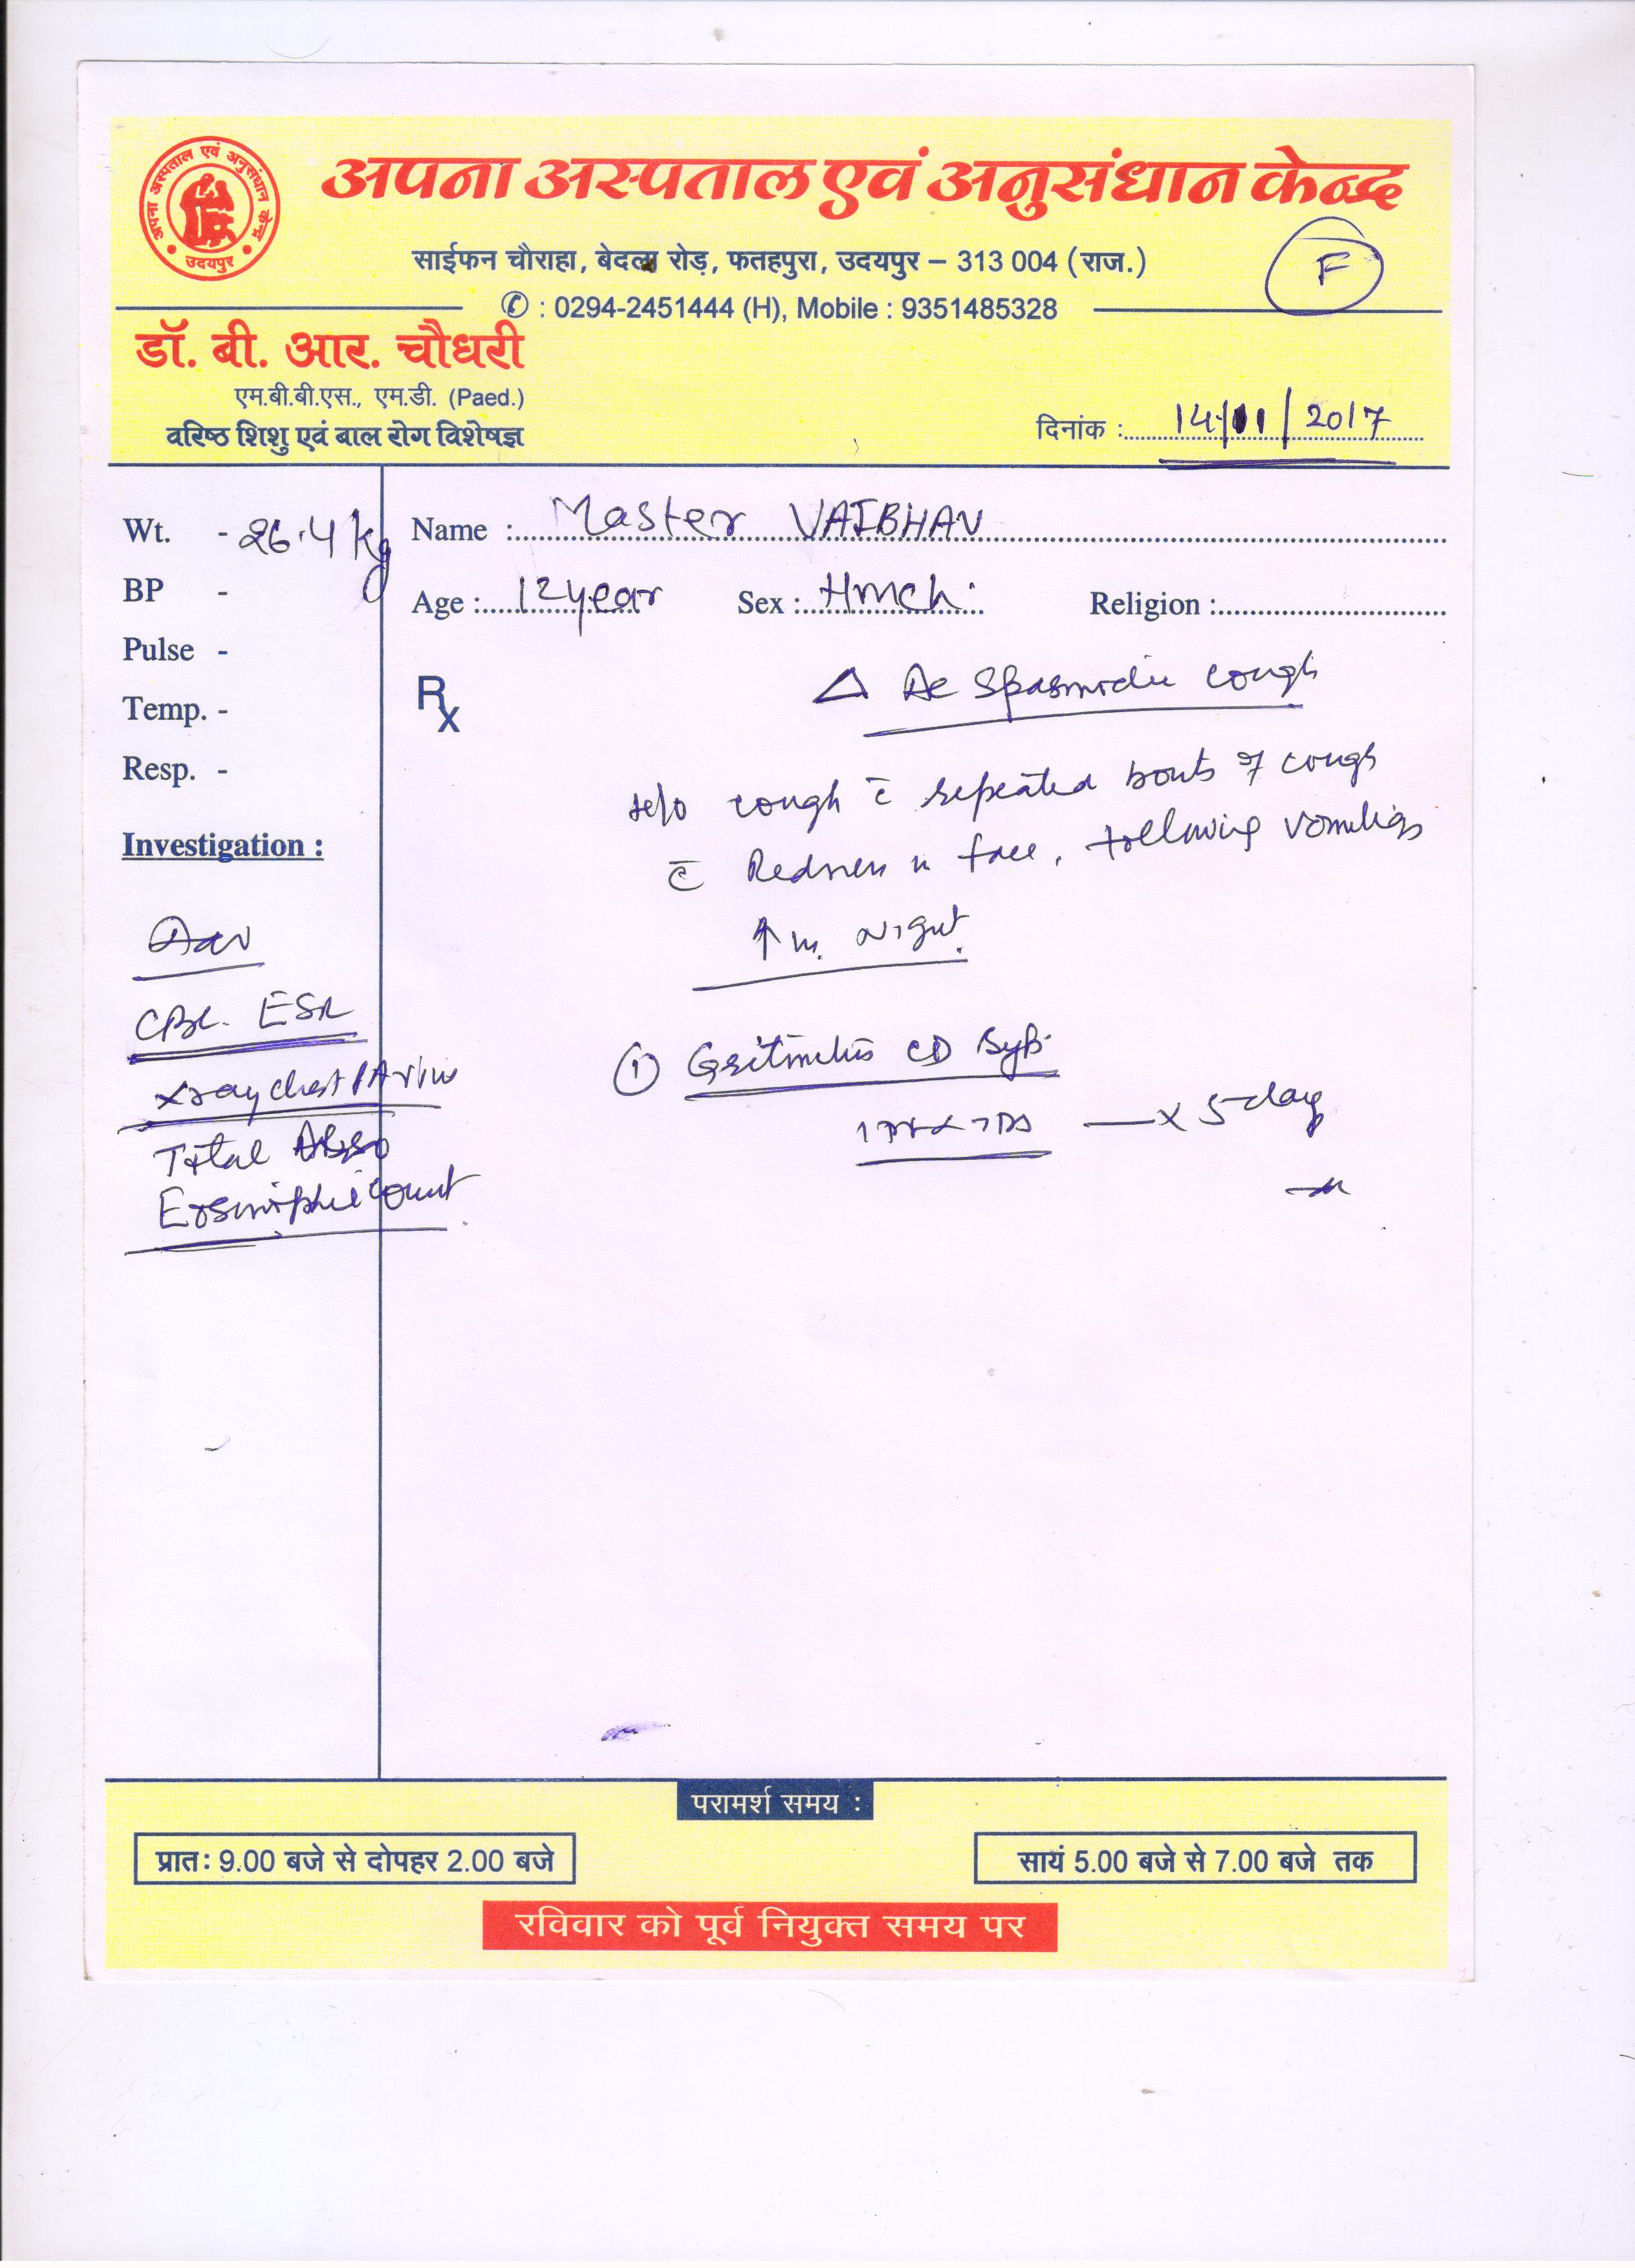 अपना अस्पताल एवं अनुसंधान केन्द्र
अपना अस्पताल एवं अनुसंधान केन्द्र
उदयपुर
साईफन चौराहा, बेदला रोड़, फतहपुरा, उदयपुर – 313 004 (राज.)
F
✆ : 0294-2451444 (H), Mobile : 9351485328
डॉ. बी. आर. चौधरी
एम.बी.बी.एस., एम.डी. (Paed.)
वरिष्ठ शिशु एवं बाल रोग विशेषज्ञ
दिनांक : 14/11/2017
Wt. - 26.4 kg
BP -
Pulse -
Temp. -
Resp. -
Investigation :
CBC. ESR
xray chest PA view
Total
Eosinophil count
Name : Master VAIBHAV
Age : 12 year Sex : Hmch. Religion :
Rx
△ Ac Spasmodic cough
H/o cough c̄ repeated bouts of cough
c̄ Redness in face, following vomiting
↑ in night
① CD Syp.
x 5 day
परामर्श समय :
प्रातः 9.00 बजे से दोपहर 2.00 बजे
सायं 5.00 बजे से 7.00 बजे तक
रविवार को पूर्व नियुक्त समय पर